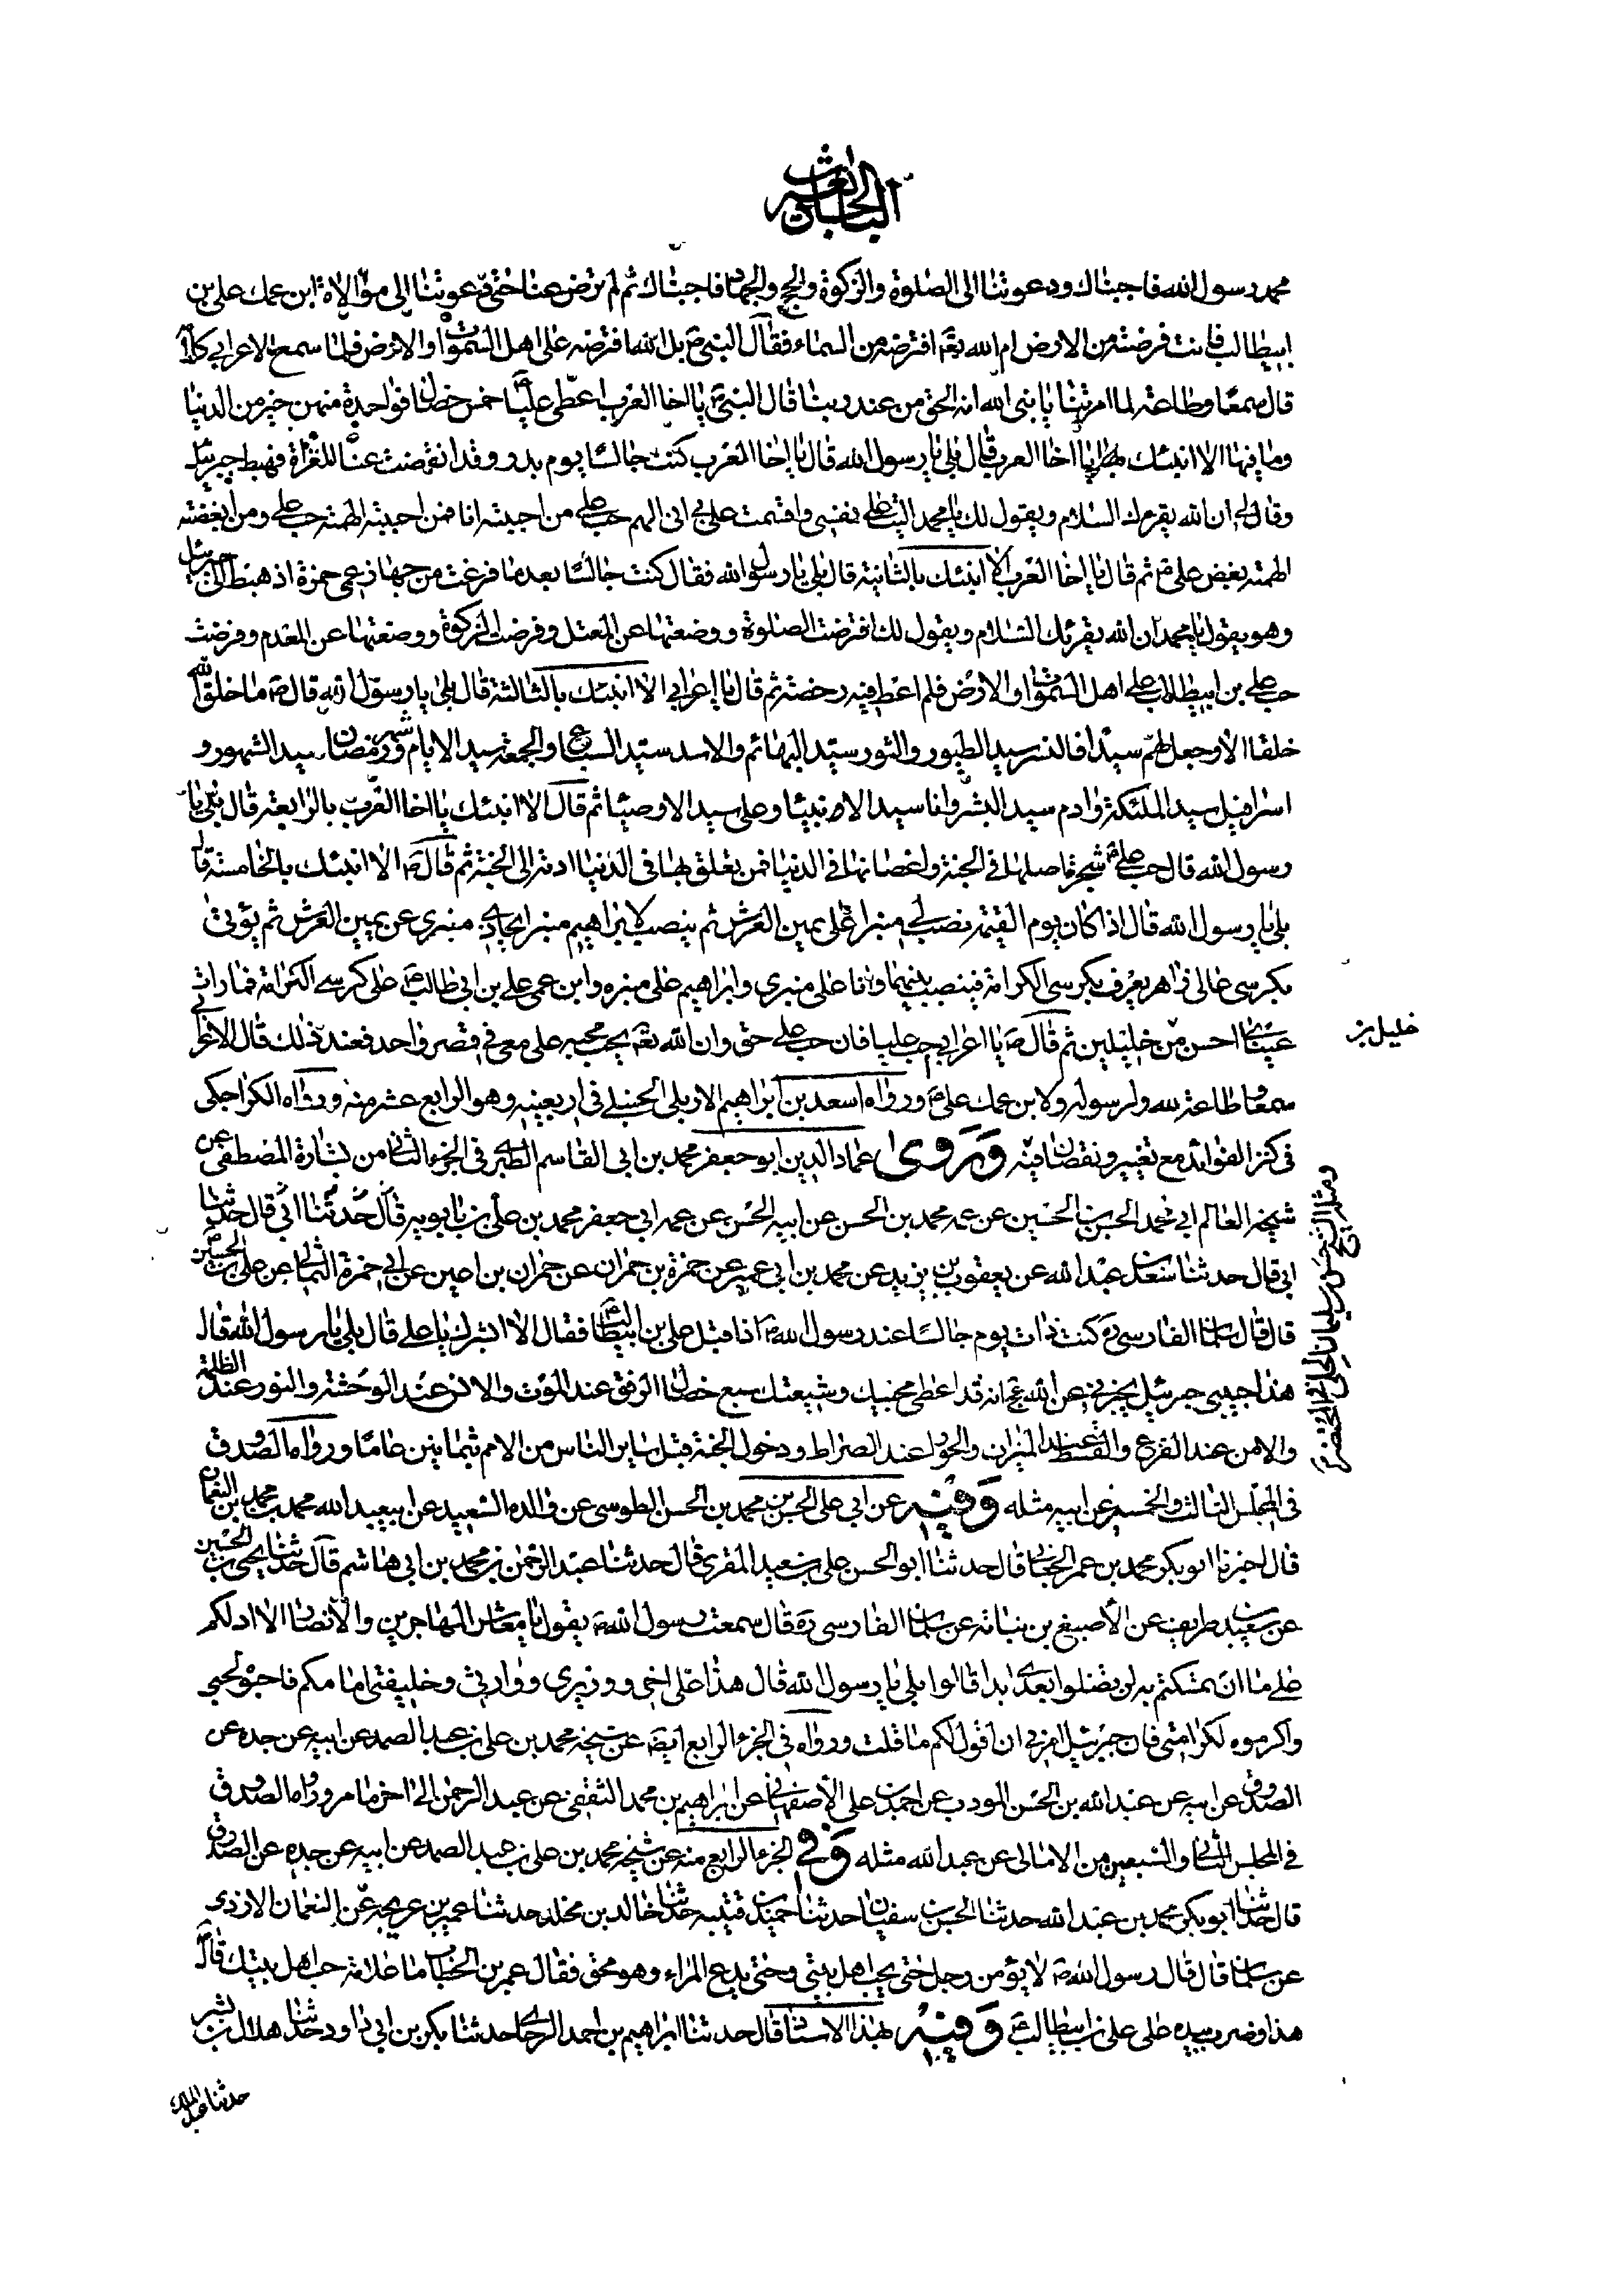 محمد رسول الله فاجبناك ودعوتنا الى الصلوة والزكوة والحج والجهاد فاجبناك ثم لم ترض عنا حتى دعوتنا الى موالاة ابن عمك على بن
ابيطالب فانت فرضته من الارض ام الله تعة افترضه من السماء فقال النبى ص بل الله افترضه على اهل السموات والارض فلما سمع الاعرابى كلامه
قال سمعا وطاعة لما امرتنا يا نبى الله انه الحق من عند ربنا قال النبى ص يا اخا العرب اعطى عليا خمس خصال فواحدة منهن خير من الدنيا
وما فيها الا انبئك بها يا اخا العرب قال بلى يا رسول الله قال يا اخا العرب كنت جالسا يوم بدر وقد انقضت عنا الغزاة فهبط جبرئيل
وقال لى ان الله يقرءك السلام ويقول لك يا محمد اليت على نفسى واقسمت على بى انى الهم حب على من احببته انا فمن احببته الهمته حب على ومن ابغضته
الهمته بغض على ع ثم قال يا اخا العرب الا انبئك بالثانية قال بلى يا رسول الله فقال كنت جالسا بعد ما فرغت من جهاز عمى حمزة اذ هبط الى جبرئيل
وهو يقول يا محمد ان الله يقرئك السلام ويقول لك افترضت الصلوة ووضعتها عن المعتل وفرضت الزكوة ووضعتها عن المعدم وفرضت
حب على بن ابيطالب على اهل السموات والارض فلم اعط فيه رخصة ثم قال يا اعرابى الا انبئك بالثالثة قال بلى يا رسول الله قال ص ما خلق الله
خلقا الا وجعل لهم سيدا فالنسر سيد الطيور والثور سيد البهائم والاسد سيد السباع والجمعة سيد الايام وشهر رمضان سيد الشهور و
اسرافيل سيد الملئكة وادم سيد البشر وانا سيد الانبيا وعلى سيد الاوصيا ثم قال الا انبئك يا اخا العرب بالرابعة قال بلى يا
رسول الله قال حب على ع شجرة اصلها فى الجنة واغصانها فى الدنيا فمن تعلق بها فى الدنيا ادته الى الجنة ثم قال ص الا انبئك بالخامسة قال
بلى يا رسول الله قال اذا كان يوم القيمة نصب لى منبر على يمين العرش ثم ينصب لابراهيم منبر يحاذى منبرى عن يمين العرش ثم يؤتى
بكرسى عالى زاهر يعرف بكرسى الكرامة فينصب بينهما وانا على منبرى وابراهيم على منبره وابن عمى على بن ابى طالب ع على كرسى الكرامة فما رات
عيناى احسن من خليلين ثم قال ص يا اعرابى حب عليا فان حب على حق وان الله تعة يحب محبه على معى فى قصر واحد فعند ذلك قال الاعرابى
خليل بن
سمعا وطاعة لله ولرسوله ولابن عمك على ع ورواه اسعد بن ابراهيم الاربلى الحنبلى فى اربعينه وهو الرابع عشر منه ورواه الكراجكى
فى كنز الفوائد مع تغيير ونقصان فيه وروى عماد الدين ابو جعفر محمد بن ابى القاسم الطبرى فى الجزء الثانى من بشارة المصطفى عن
شيخه العالم ابى محمد الحسن بن الحسين عن عمه محمد بن الحسن عن ابيه الحسن عن عمه ابى جعفر محمد بن على بن بابويه قال حدثنا ابى قال حدثنا
ابى قال حدثنا سعد بن عبد الله عن يعقوب بن يزيد عن محمد بن ابى عمير عن حمزة بن حمران عن حمران بن اعين عن ابى حمزة الثمالى عن على بن الحسين ع
قال قال سلمان الفارسى ره كنت ذات يوم جالسا عند رسول الله ص اذ اقبل على بن ابيطالب ع فقال الا ابشرك يا على قال بلى يا رسول الله قال
هذا حبيبى جبرئيل يخبرنى عن الله عج انه قد اعطى محبيك وشيعتك سبع خصال الرفق عند الموت والانس عند الوحشة والنور عند الظلمة
والامن عند الفزع والقسط عند الميزان والجواز عند الصراط ودخول الجنة قبل ساير الناس من الامم بثمانين عاما ورواه الصدوق
فى المجلس الثالث والخمسين عن ابيه مثله وفيه عن ابى على الحسن بن محمد بن الحسن الطوسى عن والده السعيد عن ابيعبد الله محمد بن محمد بن النعمان
قال اخبرنا ابو بكر محمد بن عمر الجعابى قال حدثنا ابو الحسن على بن سعيد المقرى قال حدثنا عبد الرحمن بن محمد بن ابى هاشم قال حدثنا يحيى بن الحسين
عن سعيد بن طريف عن الاصبغ بن نباتة عن سلمان الفارسى ره قال سمعت رسول الله ص يقول يا معاشر المهاجرين والانصار الا ادلكم
على ما ان تمسكتم به لن تضلوا بعدى ابدا قالوا بلى يا رسول الله قال هذا على اخى ووزيرى ووارثى وخليفتى امامكم فاحبوه لحبى
واكرموه لكرامتى فان جبرئيل امرنى ان اقول لكم ما قلت ورواه فى الجزء الرابع ايضا عن شيخه محمد بن على بن عبد الصمد عن ابيه عن جده عن
الصدوق عن ابيه عن عبد الله بن الحسن المودب عن احمد بن على الاصفهانى عن ابراهيم بن محمد الثقفى عن عبد الرحمن الى اخر ما مر ورواه الصدوق
فى المجلس الثانى والسبعين من الامالى عن عبد الله مثله وفى الجزء الرابع منه عن شيخه محمد بن على بن عبد الصمد عن ابيه عن جده عن الصدوق
قال حدثنا ابو بكر محمد بن عبد الله حدثنا الحسن بن سفيان حدثنا حميد بن قتيبه حدثنا خالد بن مخلد حدثنا عمير بن عريجه عن النعمان الازدى
عن سلمان قال قال رسول الله ص لا يؤمن رجل حتى يحب اهل بيتى وحتى يدع المراء وهو محق فقال عمر بن الخطاب ما علامة حب اهل بيتك قال
هذا وضرب بيده على على بن ابيطالب ع وفيه بهذا الاسناد قال حدثنا ابراهيم بن احمد الرجاى حدثنا بكر بن ابى داود حدثنا هلال بن بشر
حدثنا عبد الملك